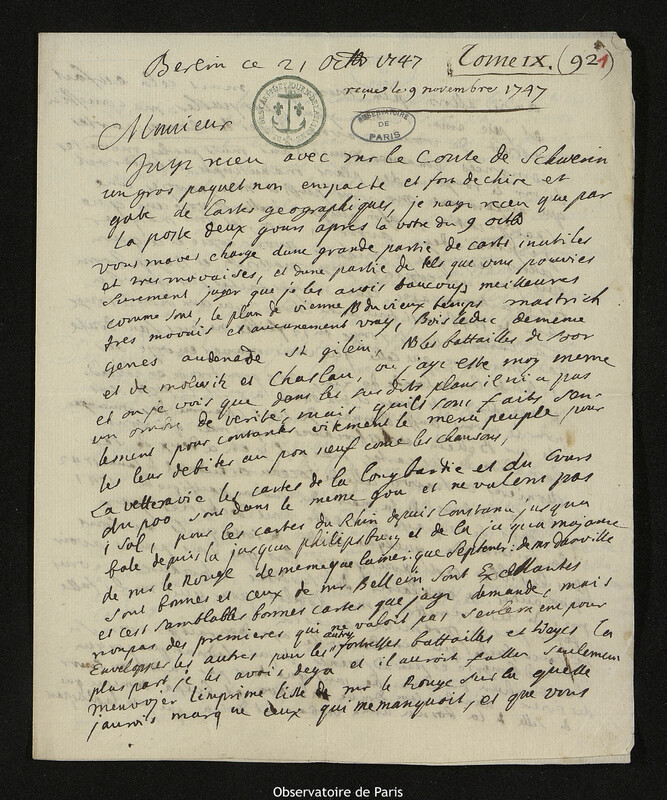 Berlin ce 21 Octb 1747 Tome IX. (921
reçue le 9 novembre 1747
OBSERVATOIRE DE PARIS
Monsieur
Jayr receu avec mr le Conte de Schwerin
un gros paquet non enpacte et fort dechire et
gate de Cartes geographiques, je nayr receu que par
La poste deux jours après la votre du 9 octb
vous maves charge dune grande partie de carts inutiles
et tres movaises, et dune partie de tels que vous pouvies
surement juger que je les avois baucoup meilheures
comme sont, le plan de vienne du vieux temps mastrich
tres movais et aucunement vray, Bois le duc de meme
genes audenade St gilein, les battailles de Soor
et de molwitz et Chaslau, ou jayr este moy meme
et ou je vois que dans les susdits plans il ni a pas
un ombre de verité mais quils sont faits seu-
lement pour contanter vitement le menu peuple pour
les leur debiter au pon neuf come les chansons,
La vetteravie les cartes de la Longbardie et du Cours
du poo sont dans le meme gou et ne valent pas
1 Sol, pour les cartes du Rhin depuis Constanu jusqua
bale depuis la jusqua philipsburg et de la jusqua majance
de mr le Rouge de meme que lameriqe Septentr: de mr danville
sont bonnes et ceux de mr Bellein sont Excellantes
et cest semblables bonnes cartes que jayr demande, mais
nonpas des premieres qui ne valoit pas seulement pour
Envelopper les autres pour les autres fortresses battailles et sieges la
plus part je les avois deya et il auroit fallu seulement
menvojer limprime liste de mr le Rouge sur la quelle
jaurois marque ceux qui me manquoit, et que vous
Observatoire de Paris